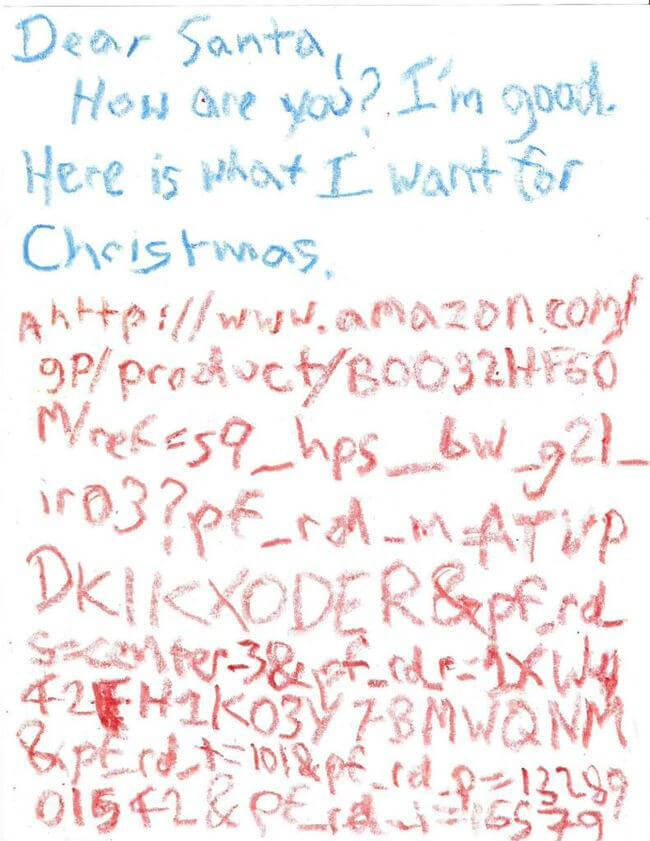 Dear Santa,
How are you? I'm good.
Here is what I want for
Christmas.
http://www.amazon.com/
gp/product/B0032HF60
M/ref=s9_hps_bw_g21_
ir03?pf_rd_m=ATVP
DKIKX0DER&pf_rd_
s=center-3&pf_rd_r=1XWY
42FH1K03Y7BMWQNM
&pf_rd_t=101&pf_rd_p=13289
01542&pf_rd_i=165579